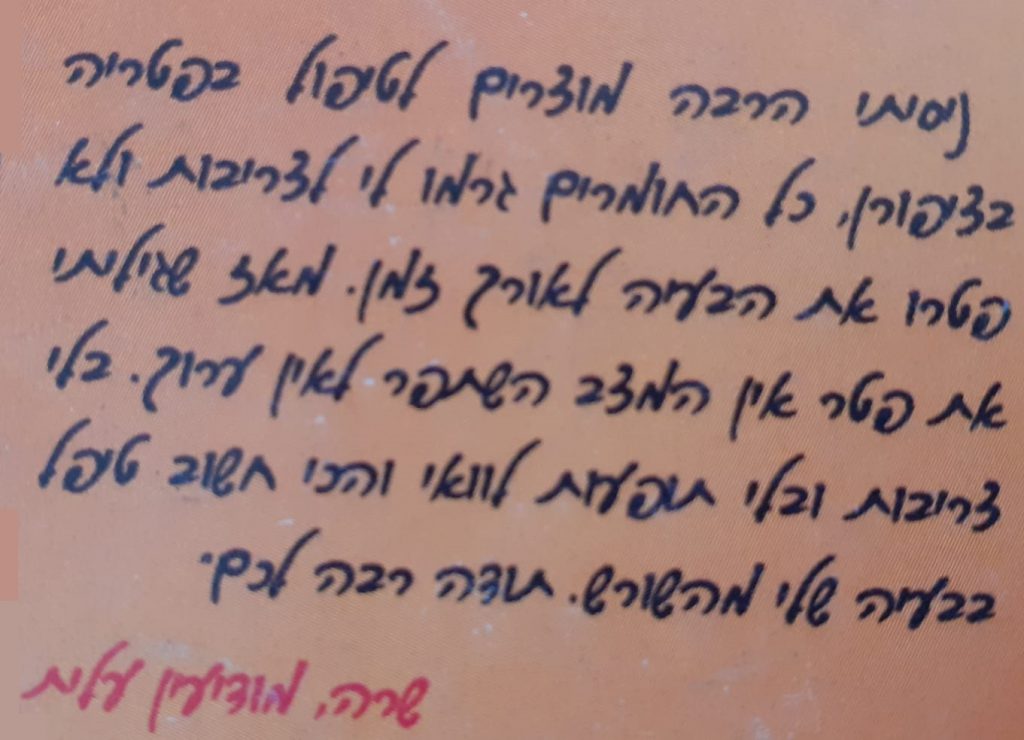 ניסיתי הרבה מוצרים לטיפול בפטריה
בציפורן, כל החומרים גרמו לי לצריבות ולא
פטרו את הבעיה לאורך זמן. מאז שגיליתי
את פטר אין המצב השתפר לאין ערוך. בלי
צריבות ובלי תופעות לוואי והכי חשוב טיפל
בבעיה שלי מהשורש. תודה רבה לכם.
שרה, מודיעין עלית